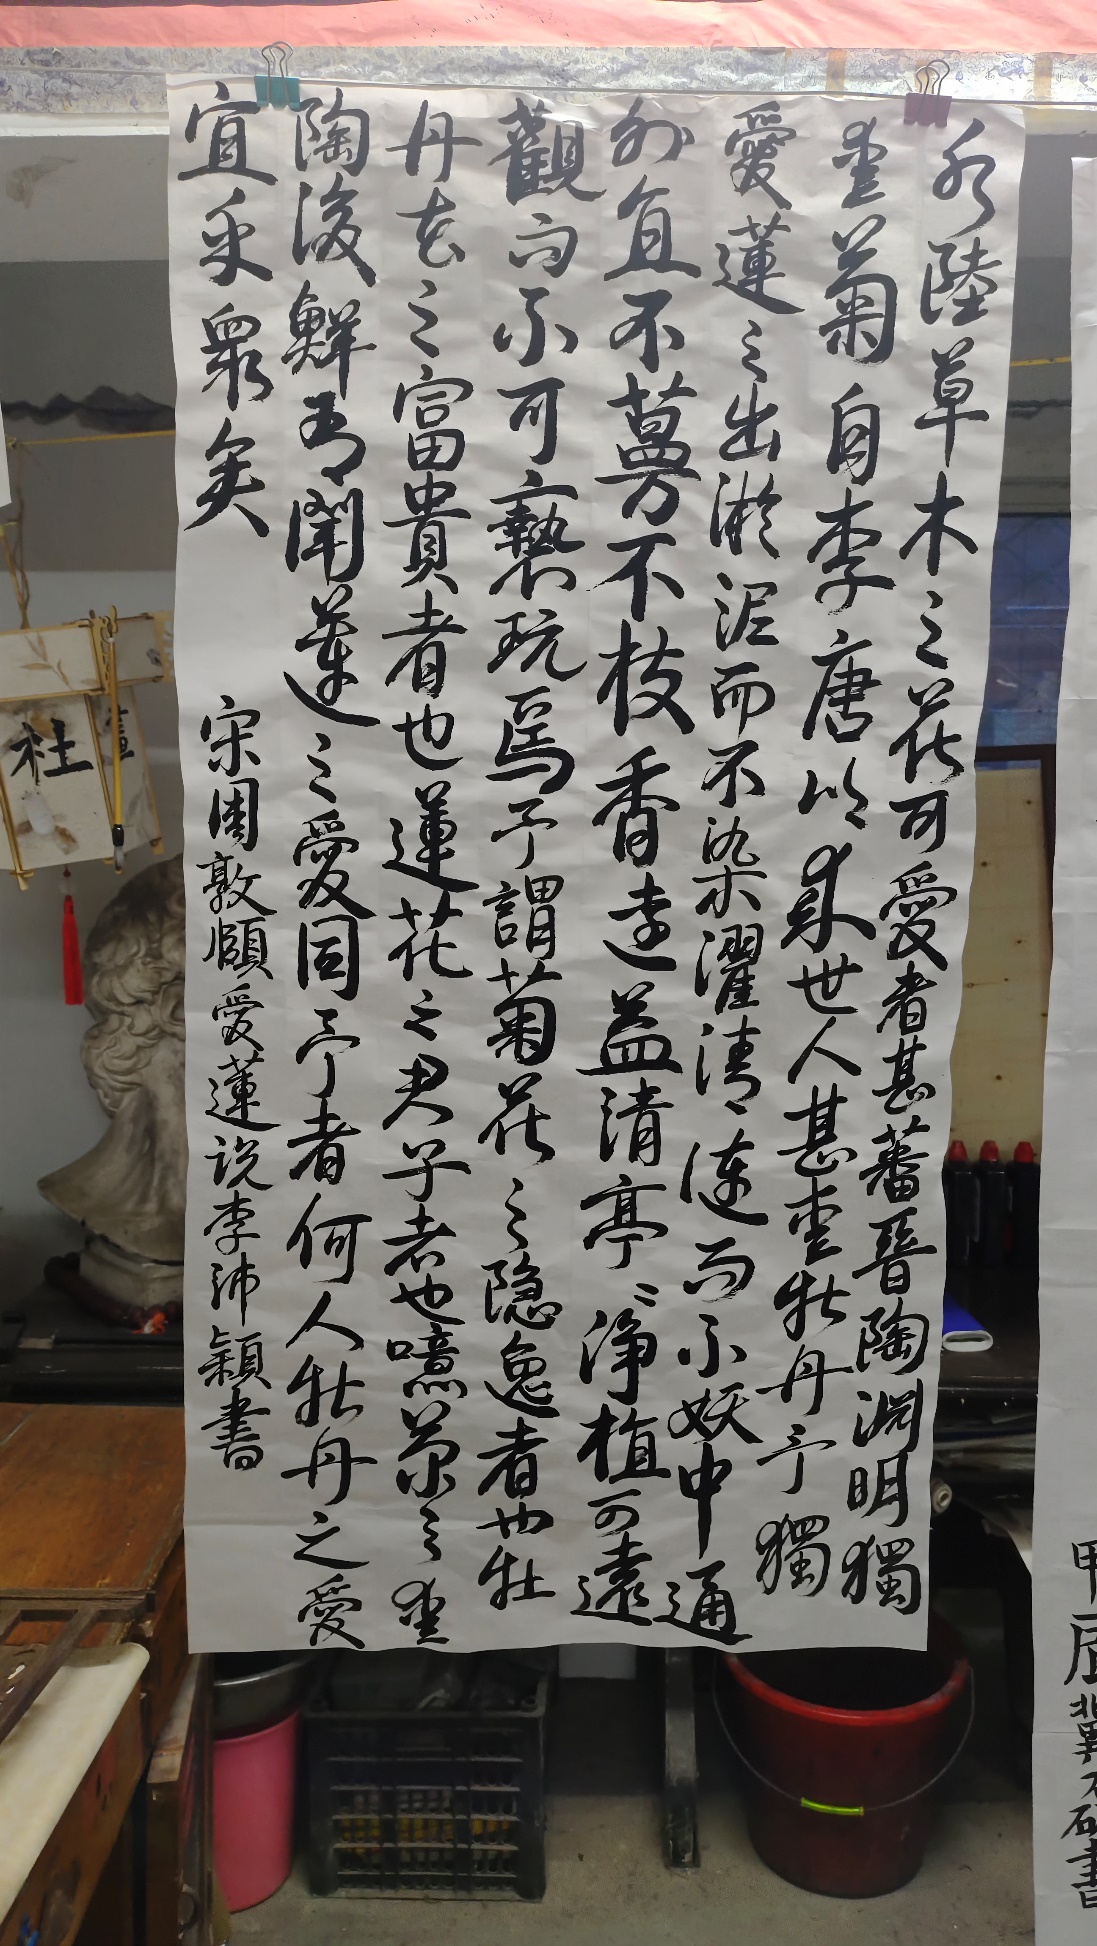 水陸草木之花可愛者甚蕃晉陶淵明獨
愛菊自李唐以來世人甚愛牡丹予獨
愛蓮之出淤泥而不染濯清漣而不妖中通
外直不蔓不枝香遠益清亭〻淨植可遠
觀而不可褻玩焉予謂菊花之隐逸者也牡
丹花之富貴者也蓮花之君子者也噫菊之愛
陶後鮮有聞蓮之愛同予者何人牡丹之愛
宜乎衆矣
宋周敦頤愛蓮說李沛穎書
杜
甲辰冀石硪書